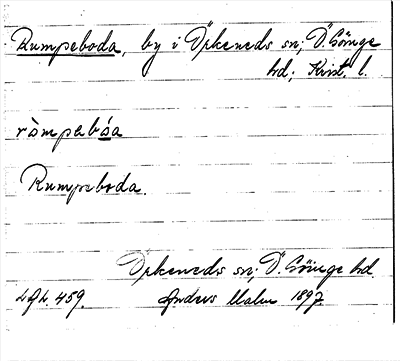 Rumpeboda, by i Örkeneds sn; Ö. Göinge
hd; Krist. l.
ràmpebóa
Rumpeboda.
Örkeneds sn; Ö. Göinge hd.
459. Anders Malm 1897.